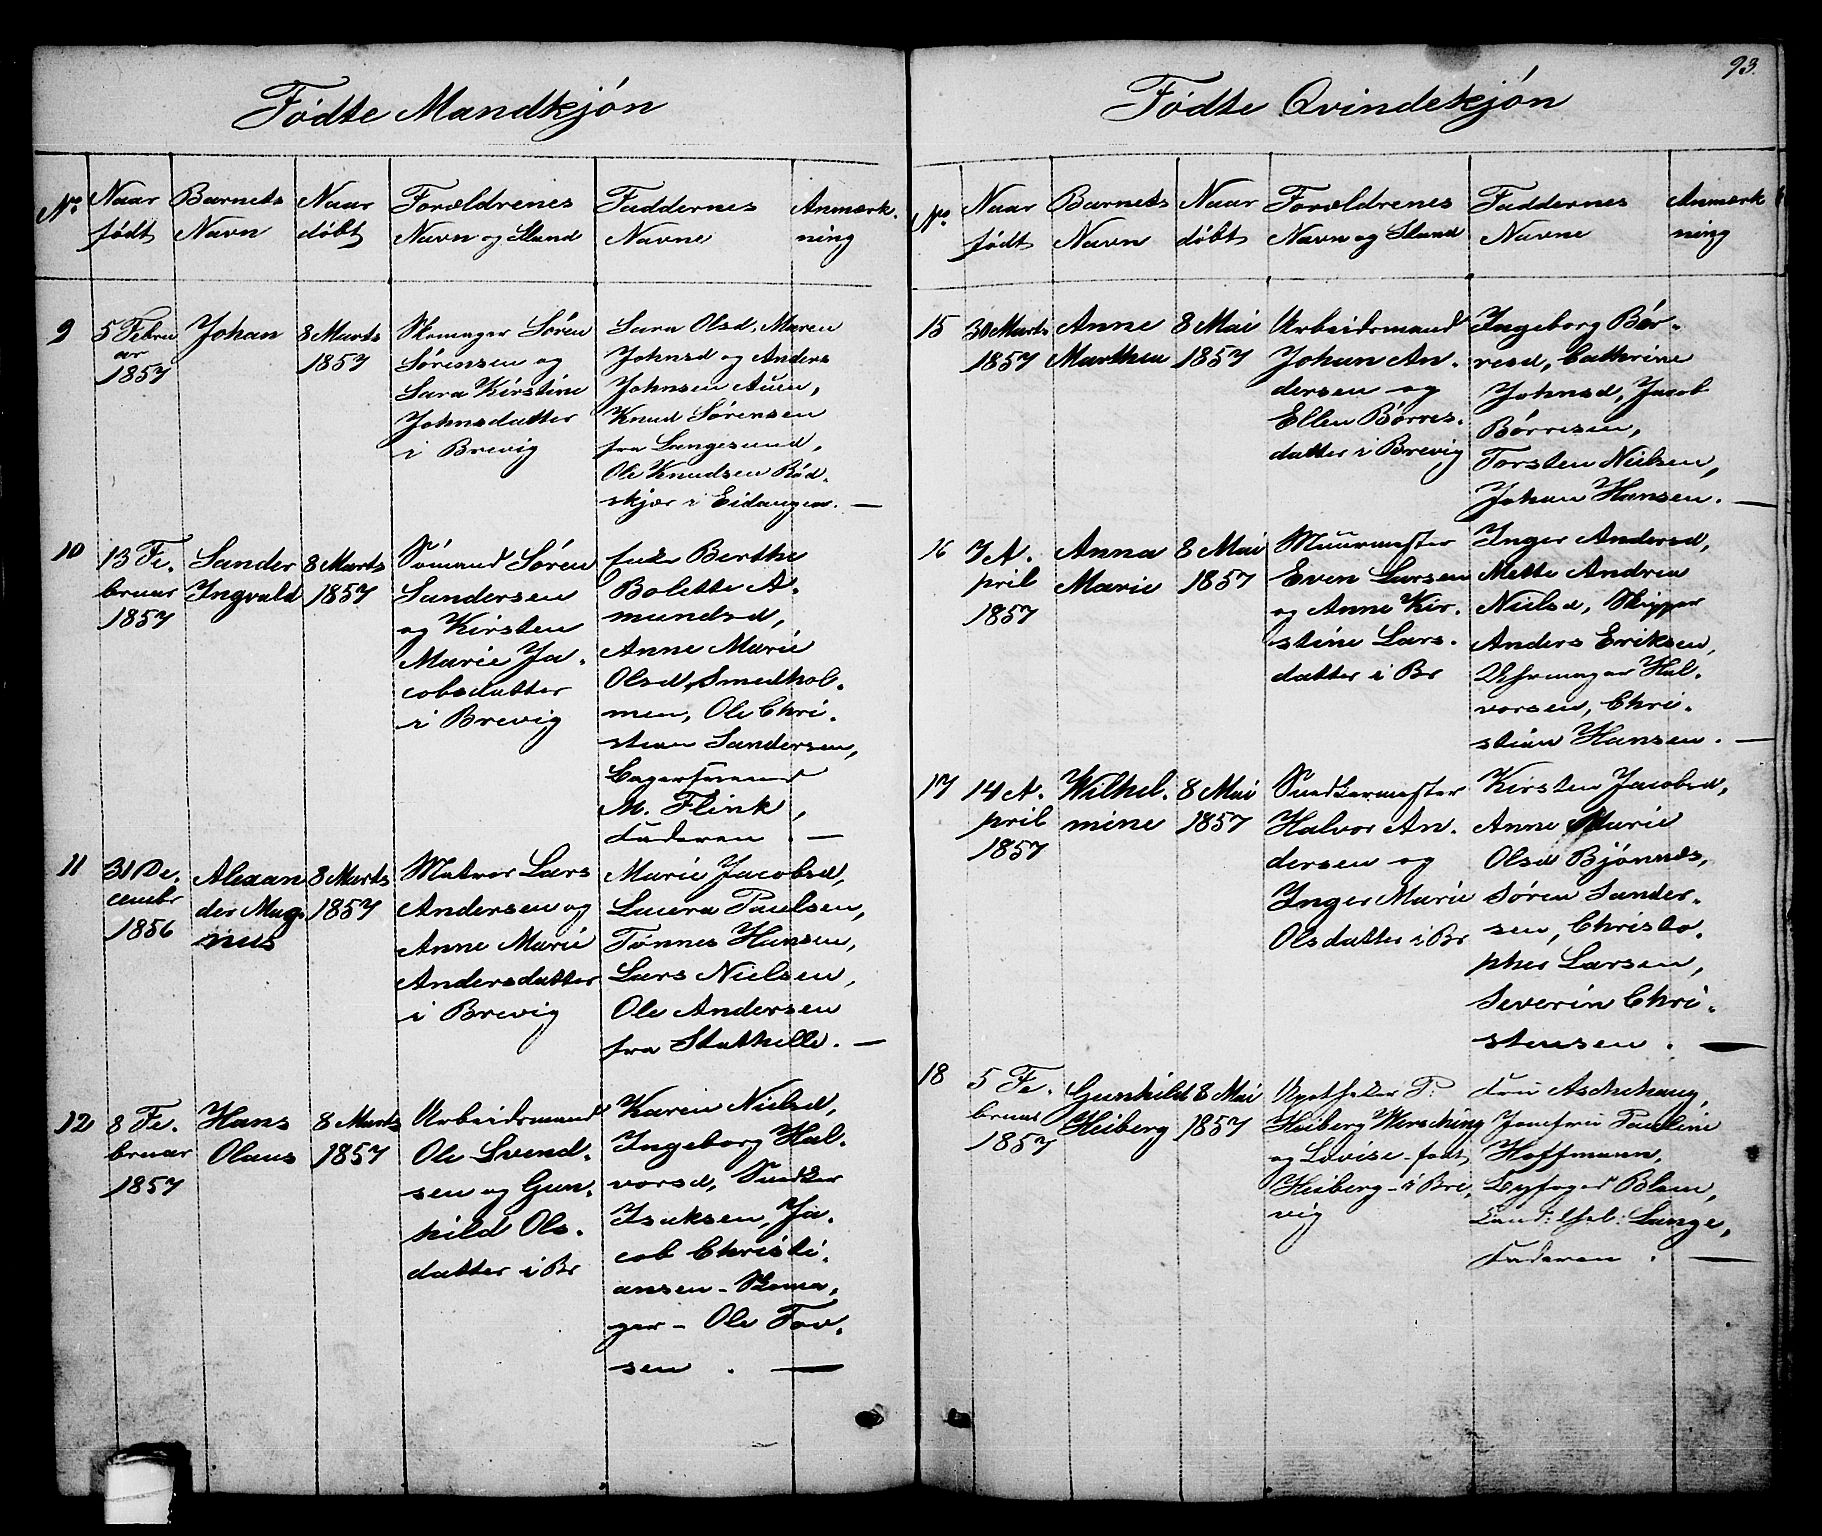 93.
Fødte Mandkjøn
No
Naar født
Barnets Navn
Naar døbt
Forældrenes Navn og Stand
Faddernes Navne
Anmærkning
9
5 Febru
ar
1857
Johan
8 Marts
1857
Skomager Søren
Sørensen og
Sara Kirstine
Johnsdatter
i Brevig
Sara Olsd, Maren
Johnsd og Anders
Johnsen Auen,
Knud Sørensen
fra Langesund,
Ole Knudsen Rød-
skjær i Eidanger. —
10
13 Fe-
bruar
1857
Sander
Ingvald
8 Marts
1857
Sømand Søren
Sandersen
og Kirsten
Marie Ja-
cobsdatter
i Brevig
Enke Berthe
Bolette A-
mundsd,
Anne Marie
Olsd, Smedhol-
men, Ole Chri-
stian Sandersen,
M. Flink,
Faderen . —
11
31 De-
cembr
1856
Alexan
der Mag-
nus
8 Marts
1857
Matros Lars
Andersen og
Anne Marie
Andersdatter
i Brevig
Marie Jacobsd,
Laura Paulsen,
Tønnes Hansen,
Lars Nielsen,
Ole Andersen
fra Stathelle. —
12
8 Fe-
bruar
1857
Hans
Olaus
8 Marts
1857
Arbeidsmand
Ole Svend-
sen og Gun-
hild Ols-
datter i Br
Karen Nielsd,
Ingeborg Hal-
vorsd, Snedker
Isaksen, Ja-
cob Christi-
ansen - Skoma-
ger - Ole Tov-
sen . —
Fødte Qvindekjøn
No
Naar født
Barnets Navn
Naar døbt
Forældrenes Navn og Stand
Faddernes Navne
Anmærkning
15
30 Marts
1857
Anne
Marthea
8 Mai
1857
Arbeidsmand
Johan An-
dersen og
Ellen Børres-
datter i Brevig
Ingeborg Bør-
resd, Cathrine
Johnsd, Jacob
Børresen,
Torsten Nielsen,
Johan Hansen. —
16
7 A-
pril
1857
Anna
Marie
8 Mai
1857
Muurmester
Even Larsen
og Anne Kir-
stine Lars-
datter i Br
Inger Andersd,
Mette Andrea
Nielsd, Skipper
Anders Eriksen,
Uhrmager Hal-
vorsen, Chri-
stian Hansen. —
17
14 A-
pril
1857
Wilhel-
mine
8 Mai
1857
Snedkermester
Halvor An-
dersen og
Inger Marie
Olsdatter i Br
Kirsten Jacobsd,
Anne Marie
Olsd Bjønnes,
Søren Sander-
sen, Christo-
pher Larsen,
Severin Chri-
stensen . —
18
5 Fe-
bruar
1857
Gunhild
Heiberg
8 Mai
1857
Apotheker P.
Heiberg Wersching
og Lovise - født
Heiberg - i Bre-
vig
Fru Aschehoug,
Jomfru Pauline
Hoffmann,
Byfoged Blom,
Cand: theol: Lange,
Faderen . —